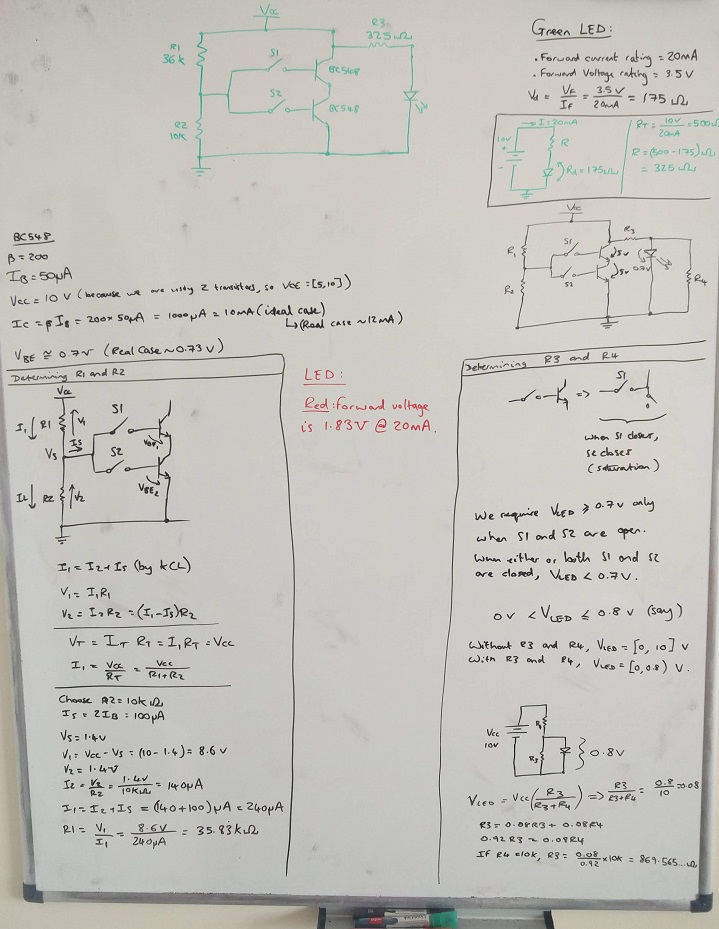 Vcc
R1
36k
S1
BC548
S2
BC548
R2
10k
R3
325Ω
Green LED:
• Forward current rating = 20mA
• Forward Voltage rating = 3.5V
= VF/IF = 3.5V/20mA = 175 Ω
→ I=20mA
10V
+
-
R
Rd = 175Ω
RT = 10V/20mA = 500Ω
R = (500-175)Ω
= 325Ω
Vcc
R1
S1
S2
R2
R3
0.7V
R4
BC548
β = 200
IB = 50μA
Vcc = 10 V (because we are using 2 transistors, so VCE = [5,10])
IC = β IB = 200 × 50μA = 1000μA = 10mA (ideal case)
↳ (Real case ~12mA)
VBE ≅ 0.7V (Real Case ~0.73V)
Determining R1 and R2
Vcc
I1 R1 V1
S1
VS IS
S2
VBE1
I2 R2 V2
VBE2
I1 = I2 + IS (by KCL)
V1 = I1R1
V2 = I2R2 = (I1-IS)R2
VT = IT RT = I1RT = Vcc
I1 = Vcc/RT = Vcc/(R1+R2)
Choose R2 = 10kΩ
IS = 2IB = 100μA
VS = 1.4V
V1 = Vcc - VS = (10-1.4) = 8.6V
V2 = 1.4V
I2 = V2/R2 = 1.4V/10kΩ = 140μA
I1 = I2 + IS = (140+100)μA = 240μA
R1 = V1/I1 = 8.6V/240μA = 35.83kΩ
LED:
Red: Forward voltage
is 1.83V @ 20mA.
Determining R3 and R4
=>
S1
when S1 closes,
S2 closes
(saturation)
We require VLED ≥ 0.7V only
when S1 and S2 are open.
When either or both S1 and S2
are closed, VLED < 0.7V.
0V < VLED ≤ 0.8V (say)
Without R3 and R4, VLED = [0, 10] V
With R3 and R4, VLED = [0,0.8) V.
Vcc
10V
R4
R3
0.8V
VLED = Vcc(R3/(R3+R4)) => R3/(R3+R4) = 0.8/10 = 0.08
R3 = 0.08R3 + 0.08R4
0.92R3 = 0.08R4
If R4 = 10k, R3 = 0.08/0.92 × 10k = 869.565...Ω